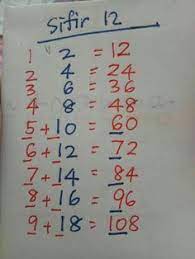 Sifir 12
1 2 = 12
2 4 = 24
3 6 = 36
4 8 = 48
5 + 10 = 60
6 + 12 = 72
7 + 14 = 84
8 + 16 = 96
9 + 18 = 108